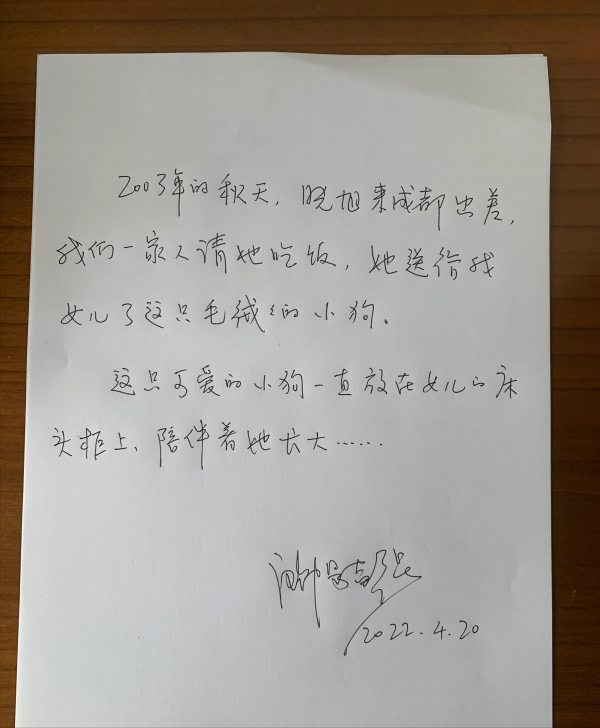 2003年的秋天，晓旭来成都出差，
我们一家人请她吃饭，她送给我
女儿了这只毛绒绒的小狗。
这只可爱的小狗一直放在女儿的床
头柜上、陪伴着她长大……
2022.4.20